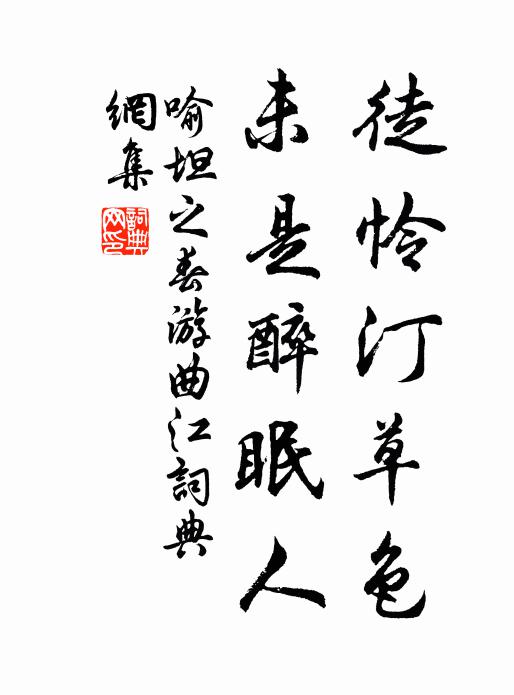 徒怜汀草色
未是醉眠人
喻坦之春游曲江詞典
網集
詞典
网印